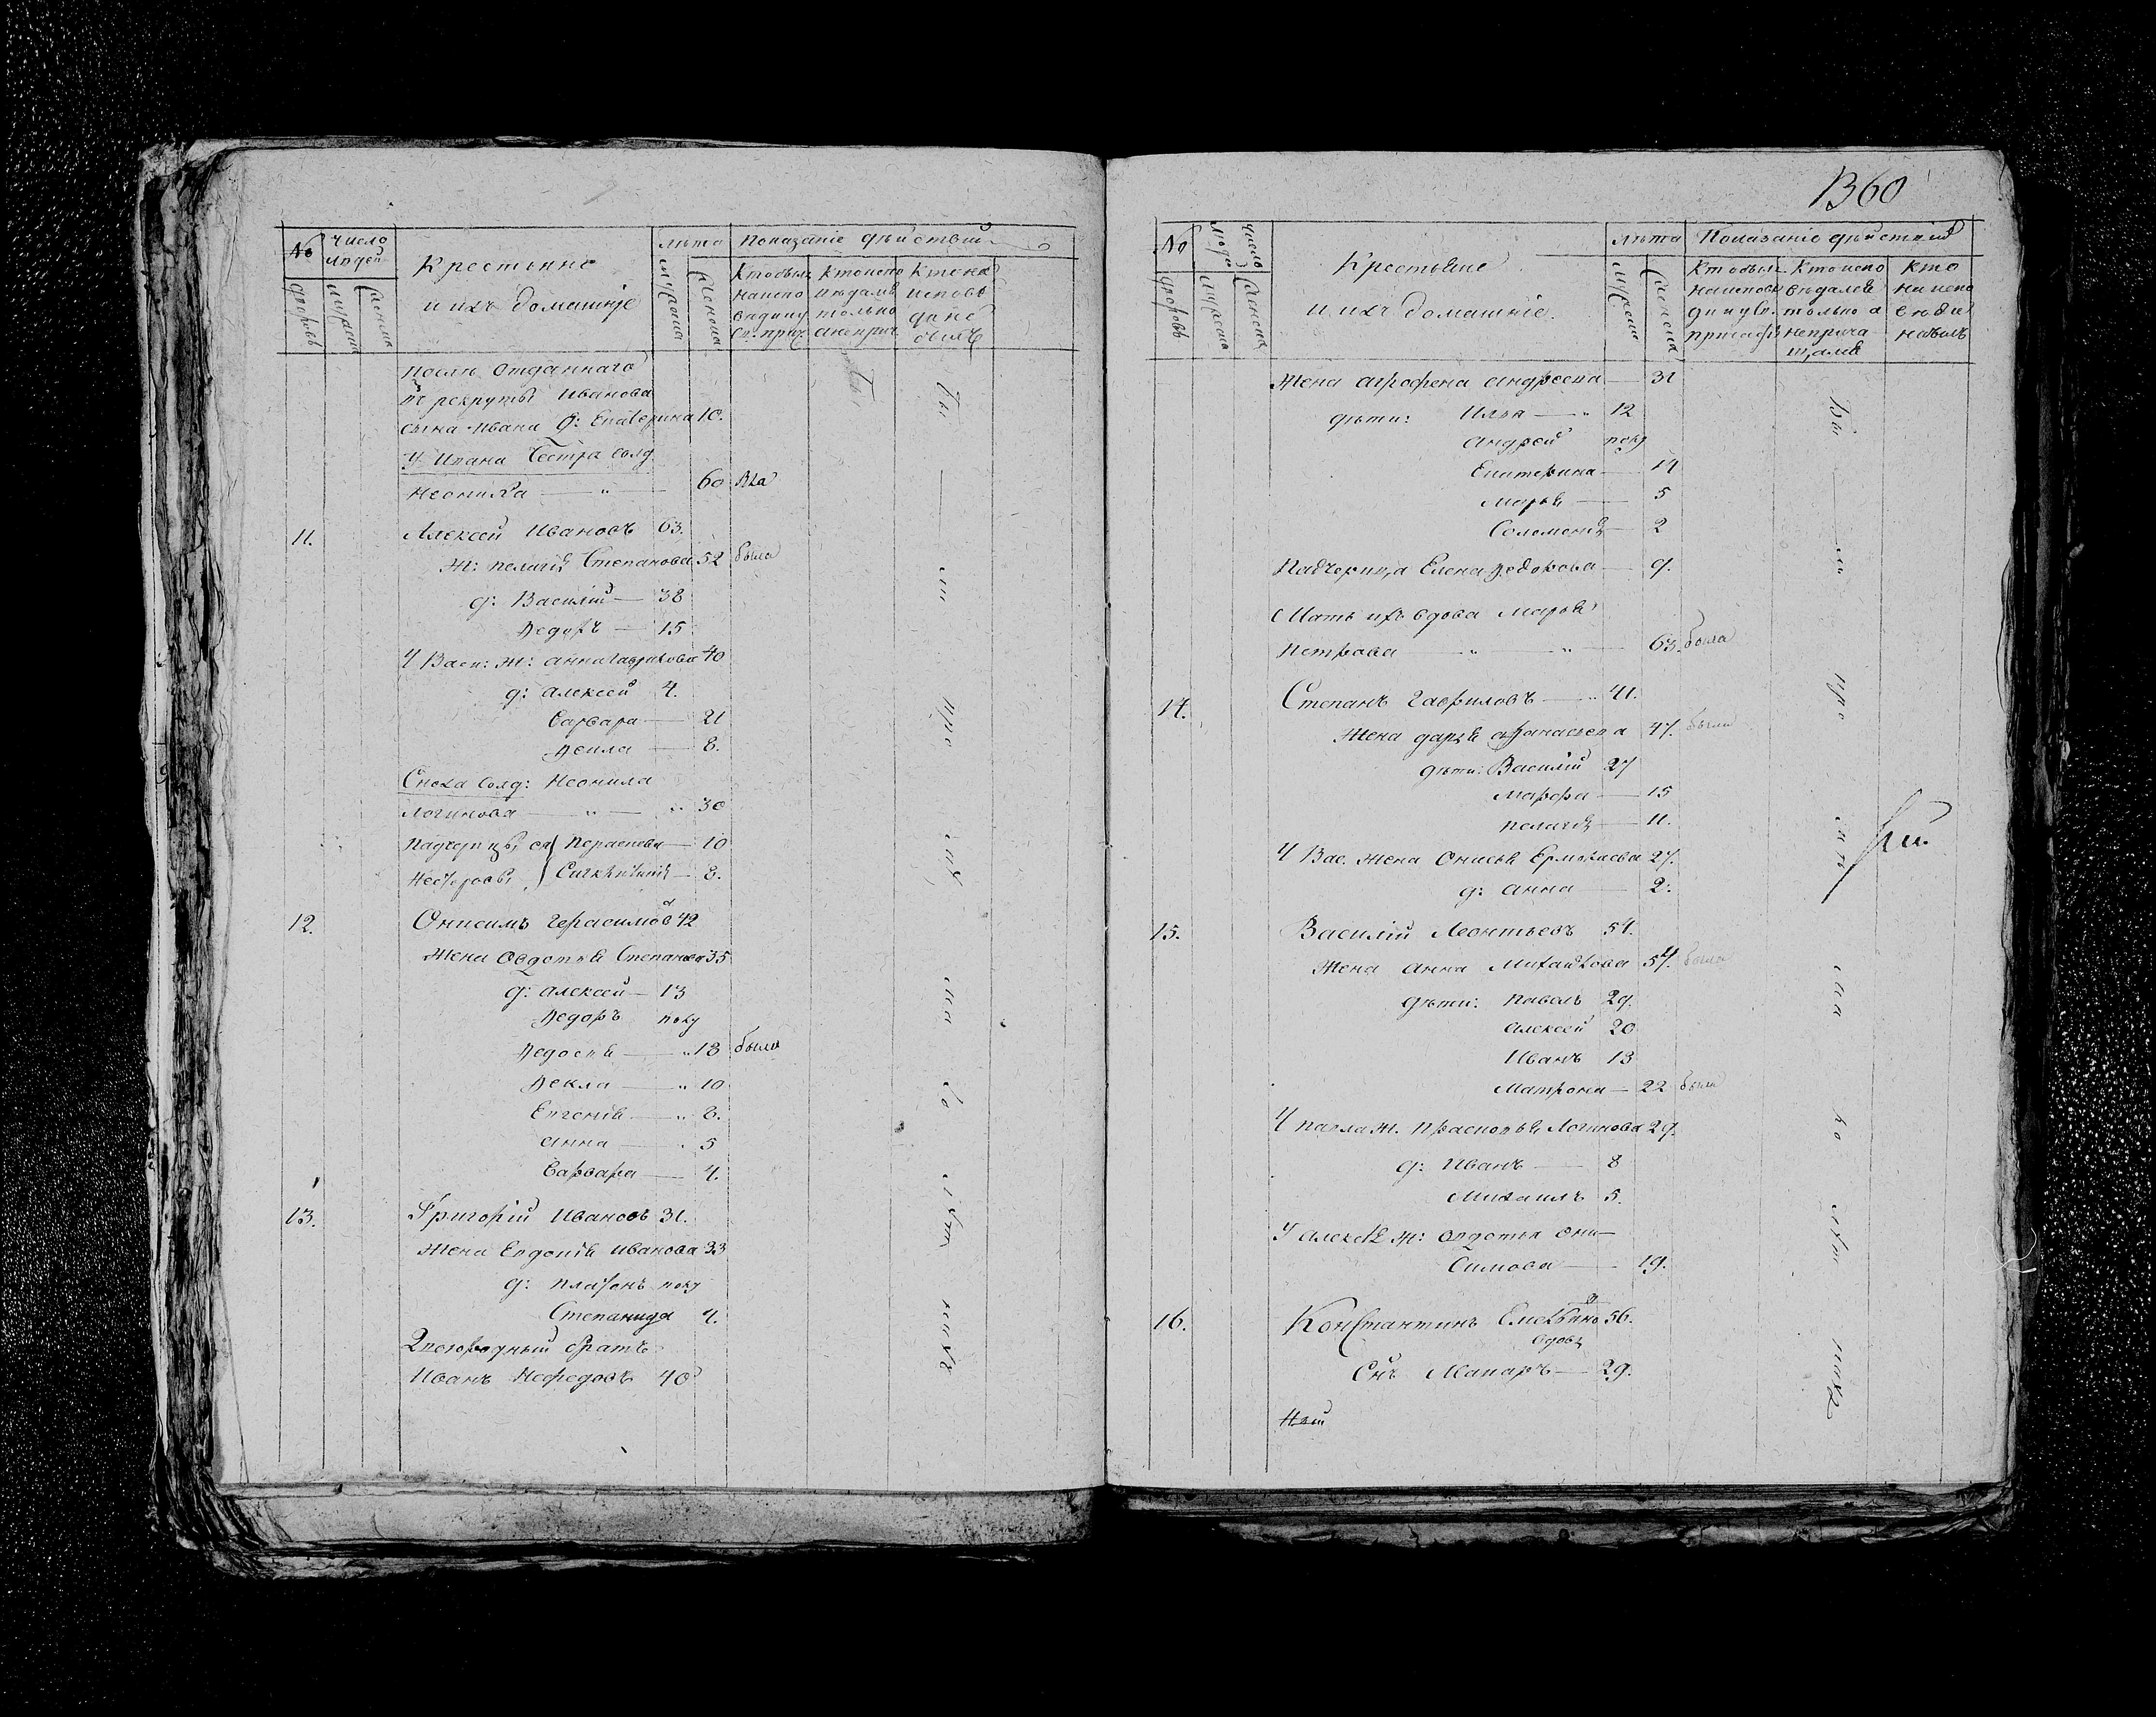 №
Число людей
Крестьяне
и ихъ домашніе
лѣта
Показаніе дѣйствий
дворовъ
мужеска
женска
мужеска
женска
Кто былъ
на испо
вѣди и у
Св: прич.
Кто испо
вѣдалсѧ
только
а не прич
Кто на
исповѣ
ди не
былъ
После отданнаго
въ рекруты Иванова
сына Ивана д: Екатерина 10.
У Ивана Сестра солд
Неонила — „ — 60
11. Алексей Ивановъ 63.
Ж: пелагія Степанова 52 была
д: Василій — 38
Ѳедоръ — 15
У Васи: ж: анна Гаврилова 40
д: алексей 4.
Варвара — 21
Ѳекла — 8.
Сноха солд: Неонила
Логинова — „ — „ 30
падчерицы ея Парасковья — 10
Нестеровы — 8.
12. Онисимъ Герасимовъ 42
Жена Овдотья Степанова 35
д: алексей — 13
Ѳедоръ полу
Ѳедосья — „ 18 была
Ѳекла — „ 10
Евгенія — „ 8.
анна „ 5
Варвара — 4.
13. Григорій Ивановъ 31.
Жена Евдокія Иванова 33
д: Платонъ полу
Степанида 4.
Двоюродный братъ
Иванъ Нефедовъ 40
1360
№
Число людей
Крестьяне
и ихъ домашніе.
лѣта
Показаніе дѣйствій
дворовъ
мужеска
женска
мужеска
женска
Кто былъ
на исповѣ
ди и у Св.
причас
Кто испо
вѣдалсѧ
только а
не прича
щалсѧ
Кто
на испо
вѣди
не былъ
Жена агрофена андреева — 31
дѣти: Илья — „ 12
андрей полу
Екатерина — 14
Марья — 5
Соломонія — 2
Падчерица Елена Ѳедорова — 9.
Мать ихъ вдова Марья
Петрова — „ — „ — 63. была
14. Степанъ Гавриловъ — „ 41.
Жена дарья афанасьева 47. была
дѣти: Василій 27
Марфа — 15
пелагія — 11.
У Вас. жена Онисья Ермолаева 27.
д: анна 2.
15. Василій Леонтьевъ 51.
Жена анна Михайлова 54. была
дѣти: павелъ 29.
алексей 20
Иванъ 13
Матрона — 22 была
У павла ж. Прасковья Логинова 29.
д: Иванъ — 8
Михаилъ 5.
У алексѣя ж: овдотья Они-
Симова — 19.
16. Константинъ Емельяновъ 56.
вдовъ
Снъ Макаръ — 29.